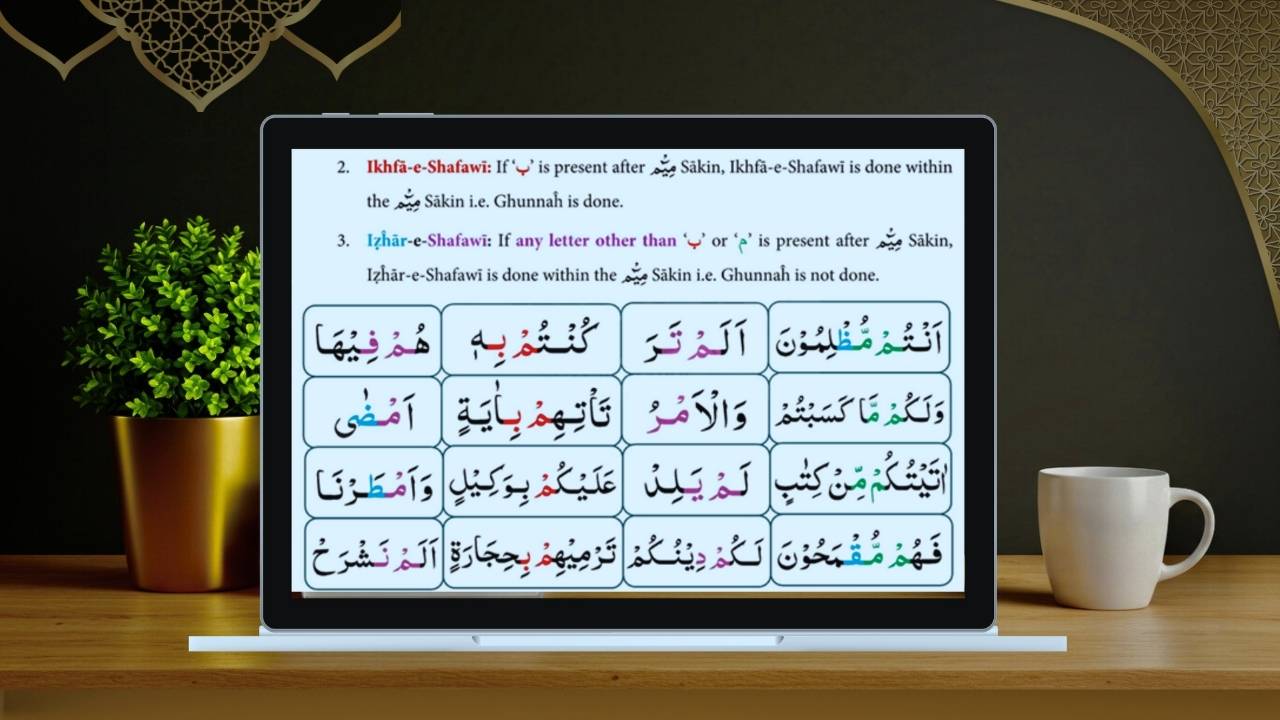 2. Ikhfā-e-Shafawī: If ‘ب’ is present after مِیْم Sākin, Ikhfā-e-Shafawī is done within
the مِیْم Sākin i.e. Ghunnaĥ is done.
3. Iẓĥār-e-Shafawī: If any letter other than ‘ب’ or ‘م’ is present after مِیْم Sākin,
Iẓĥār-e-Shafawī is done within the مِیْم Sākin i.e. Ghunnaĥ is not done.
اَنْتُمْ مُّظْلِمُوْنَ اَلَمْ تَرَ كُنْتُمْ بِهٖ هُمْ فِیْهَا
وَلَكُمْ مَّا كَسَبْتُمْ وَالْاَمْرُ تَاْتِهِمْ بِاٰیَةٍ اَمْضٰی
اٰتَیْتُكُمْ مِّنْ كِتٰبٍ لَمْ یَلِدْ عَلَیْكُمْ بِوَكِیْلٍ وَاَمْطَرْنَا
فَهُمْ مُّقْمَحُوْنَ لَكُمْ دِیْنُكُمْ تَرْمِیْهِمْ بِحِجَارَةٍ اَلَمْ نَشْرَحْ